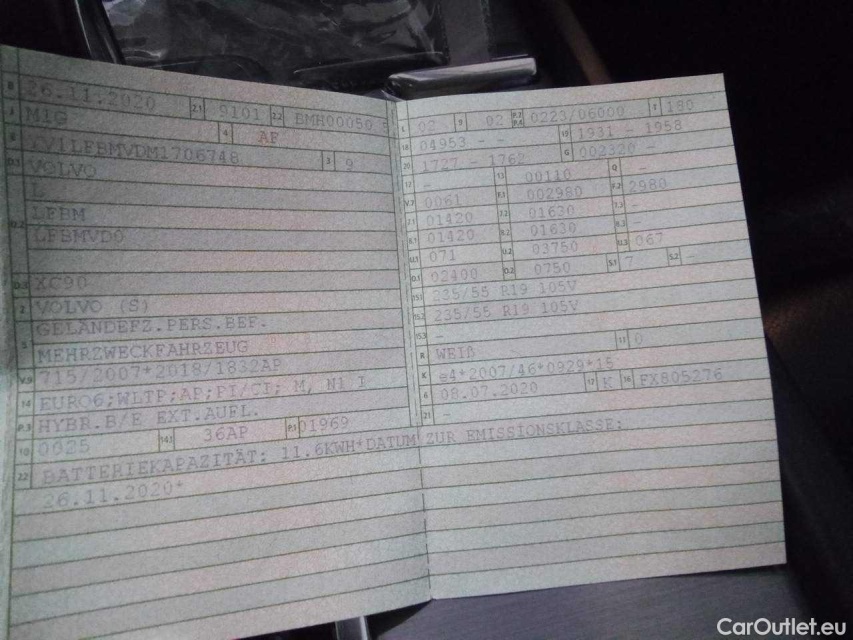 B 26.11.2020 2.1 9101 2.2 BMH00050 8
J M1G 4 AF
E YV1LFBMVDM1706748 3 9
D.1 VOLVO
L
D.2 LFBM
LFBMVD0
D.3 XC90
2 VOLVO (S)
5 GELÄNDEFZ.PERS.BEF.
MEHRZWECKFAHRZEUG
V.9 715/2007*2018/1832AP
14 EURO6;WLTP;AP;PI/CI; M, N1 I
P.3 HYBR.B/E EXT.AUFL.
10 0025 14.1 36AP P.1 01969
22 BATTERIEKAPAZITÄT: 11.6KWH*DATUM ZUR EMISSIONSKLASSE:
26.11.2020*
L 02 9 02 P.2 P.4 0223/06000 T 180
18 04953 - - 19 1931 - 1958
20 1727 - 1762 G 002320 -
12 - 13 00110 Q -
V.7 0061 F.1 002980 F.2 2980
7.1 01420 7.2 01630 7.3 -
8.1 01420 8.2 01630 8.3 -
U.1 071 U.2 03750 U.3 067
O.1 02400 O.2 0750 S.1 7 S.2 -
15.1 235/55 R19 105V
15.2 235/55 R19 105V
15.3 -
R WEIß 11 0
K e4*2007/46*0929*15
6 08.07.2020 17 K 16 FX805276
21 -
CarOutlet.eu